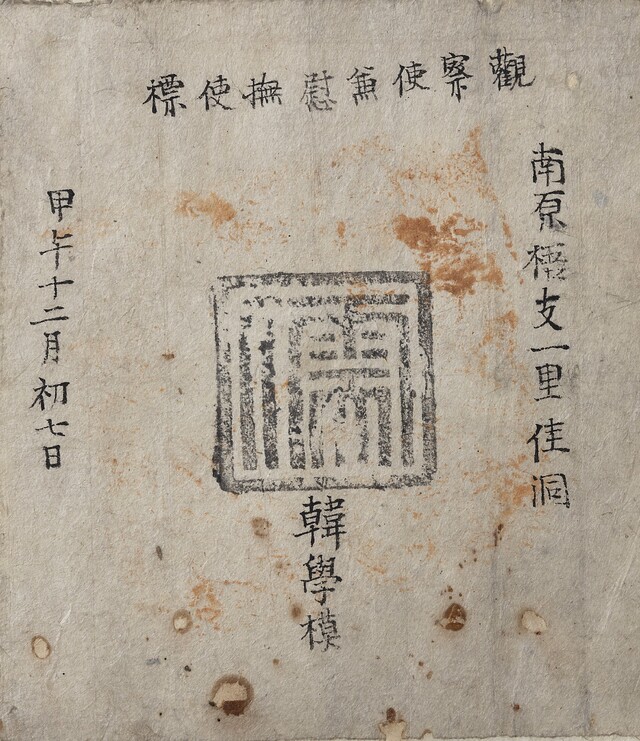 觀察使兼慰撫使標
南原梧支一里佳洞
韓學模
甲午十二月初七日